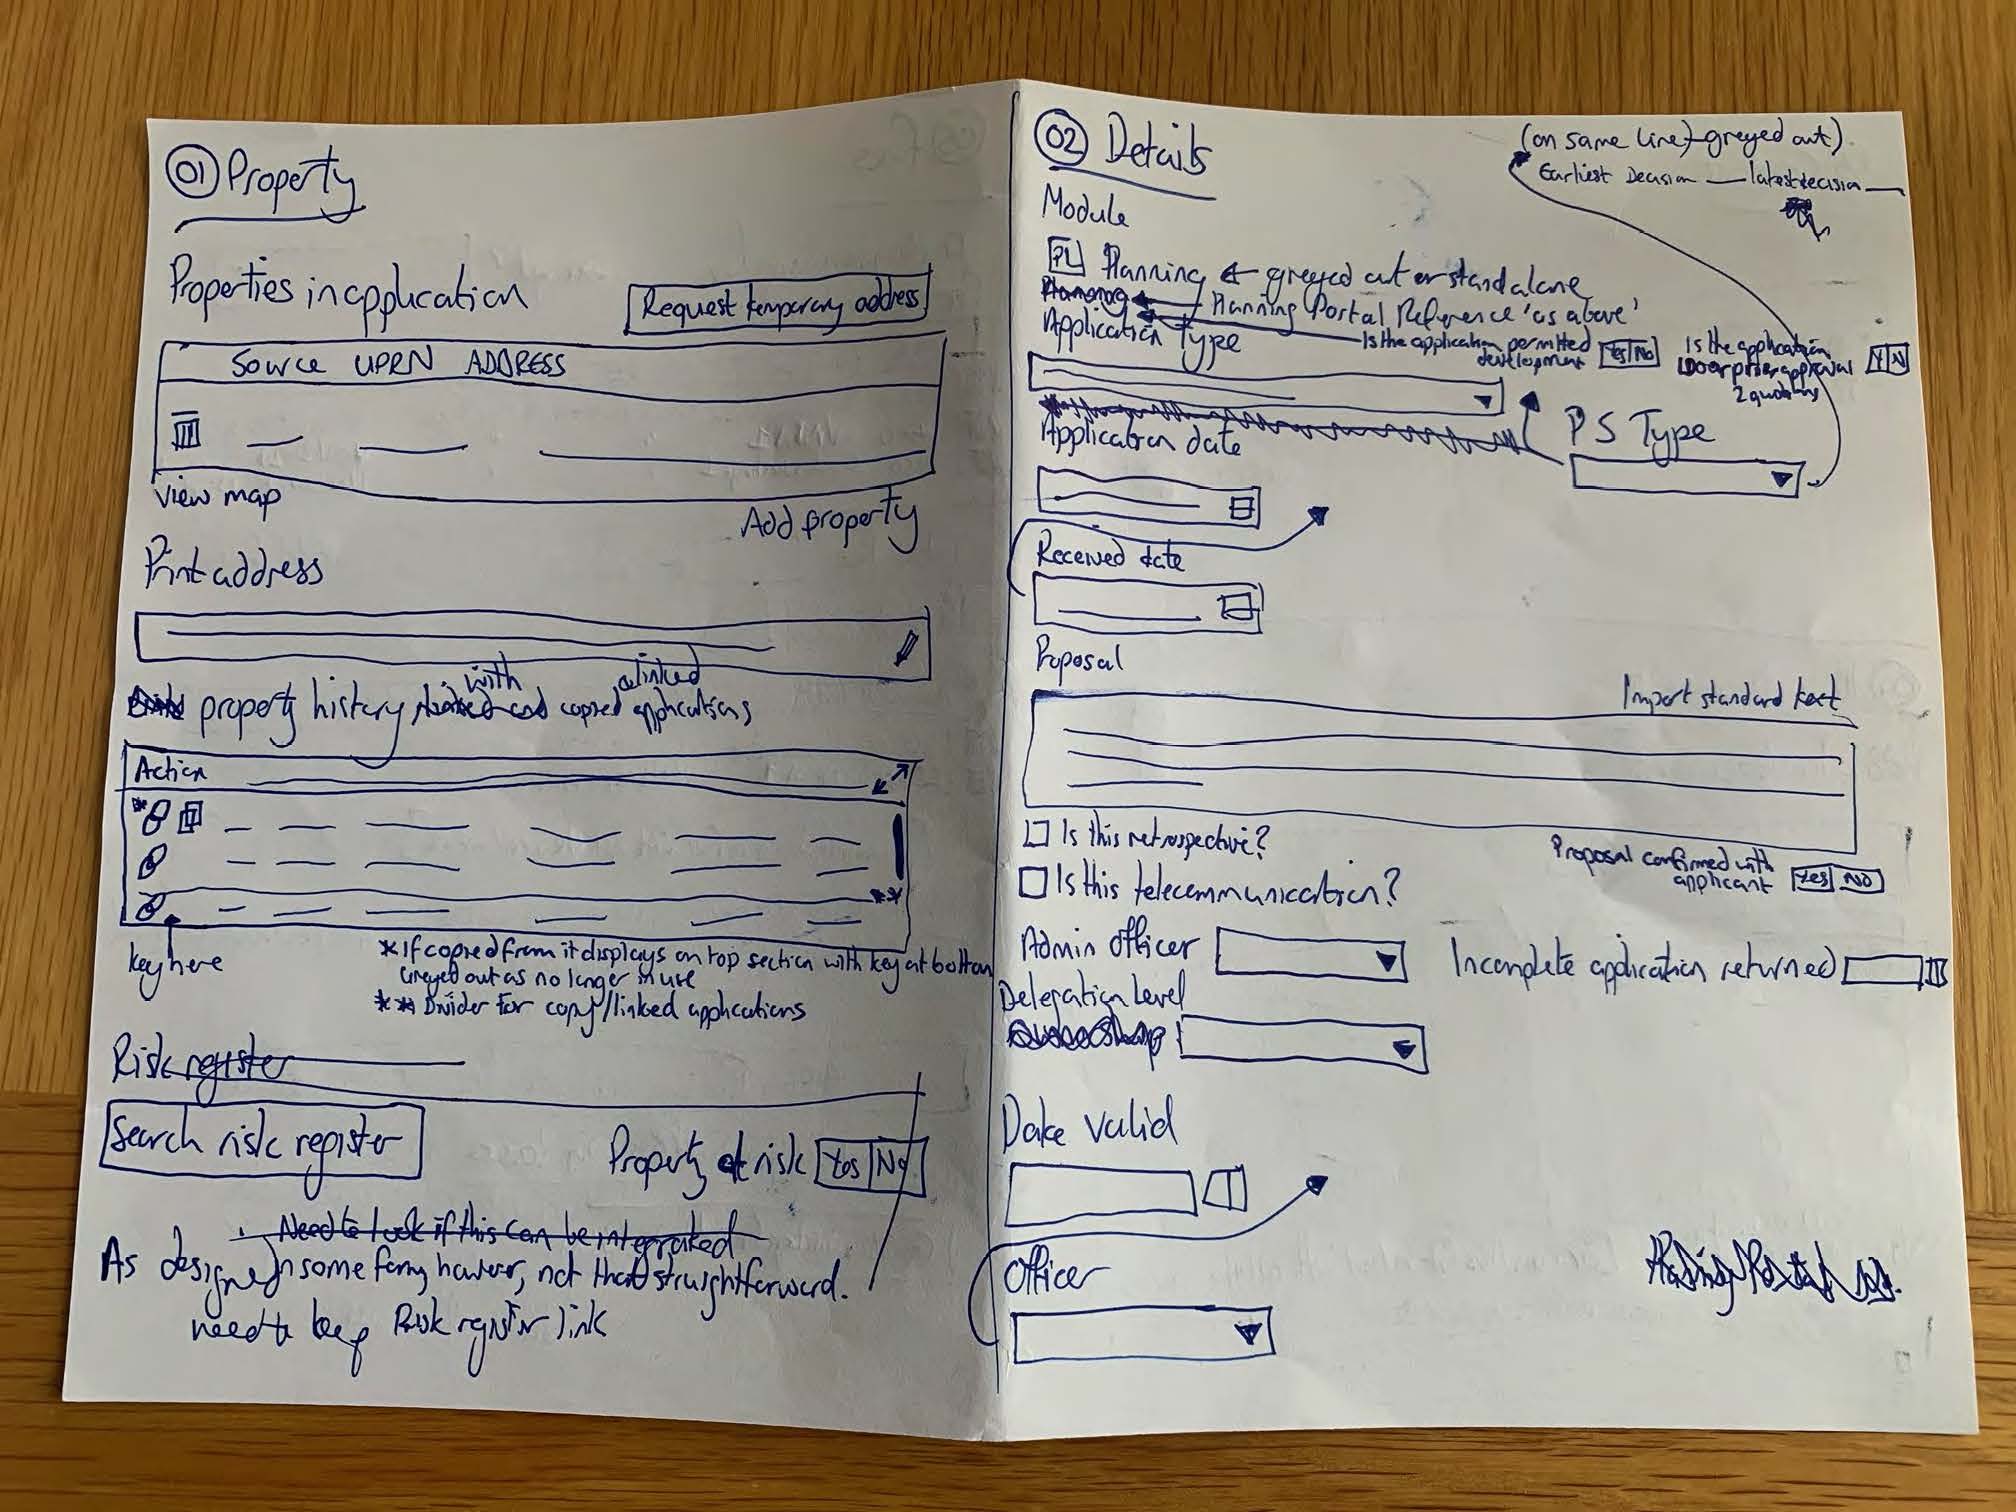 01 Property
Properties in application
Request temporary address
Source UPRN ADDRESS
View map
Add property
Print address
with linked
property history linked and copied applications
Action
Key here
* If copied from it displays on top section with key at bottom
Greyed out as no longer in use
** Divider for copy/linked applications
Risk register
Search risk register
Property at risk Yes No
Need to look if this can be integrated
As designed in some form, however, not that straightforward.
need to keep Risk register link
02 Details
(on same line) greyed out).
Earliest Decision latest decision
Module
PL Planning greyed out or standalone
Planning Planning Portal Reference 'as above'
Application Type
Is the application permitted development Yes No
Is the application prior approval Y N
2 questions
PS Type
Application date
Received date
Proposal
Import standard text
Is this retrospective?
Proposal confirmed with applicant Yes No
Is this telecommunication?
Admin Officer
Incomplete application returned
Delegation Level
Date Valid
Officer